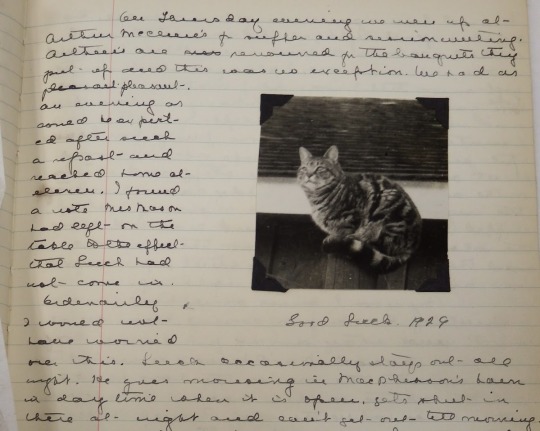 On Thursday evening we were up at
Arthur McClure's for supper and session meeting.
Arthurs are renowned for the banquets they
put up and this was no exception. We had as
pleasant
an evening as
could be expect-
ed after such
a repast and
reached home at
eleven. I found
a note Mrs Mason
had left on the
table to the effect
that Luck had
not come in.
Ordinarily
I would not
have worried
over this. Luck occasionally stays out all
night. He goes mousing in MacPherson's barn
in day time when it is open, gets shut in
there at night and can't get out till morning.
Good Luck. 1929